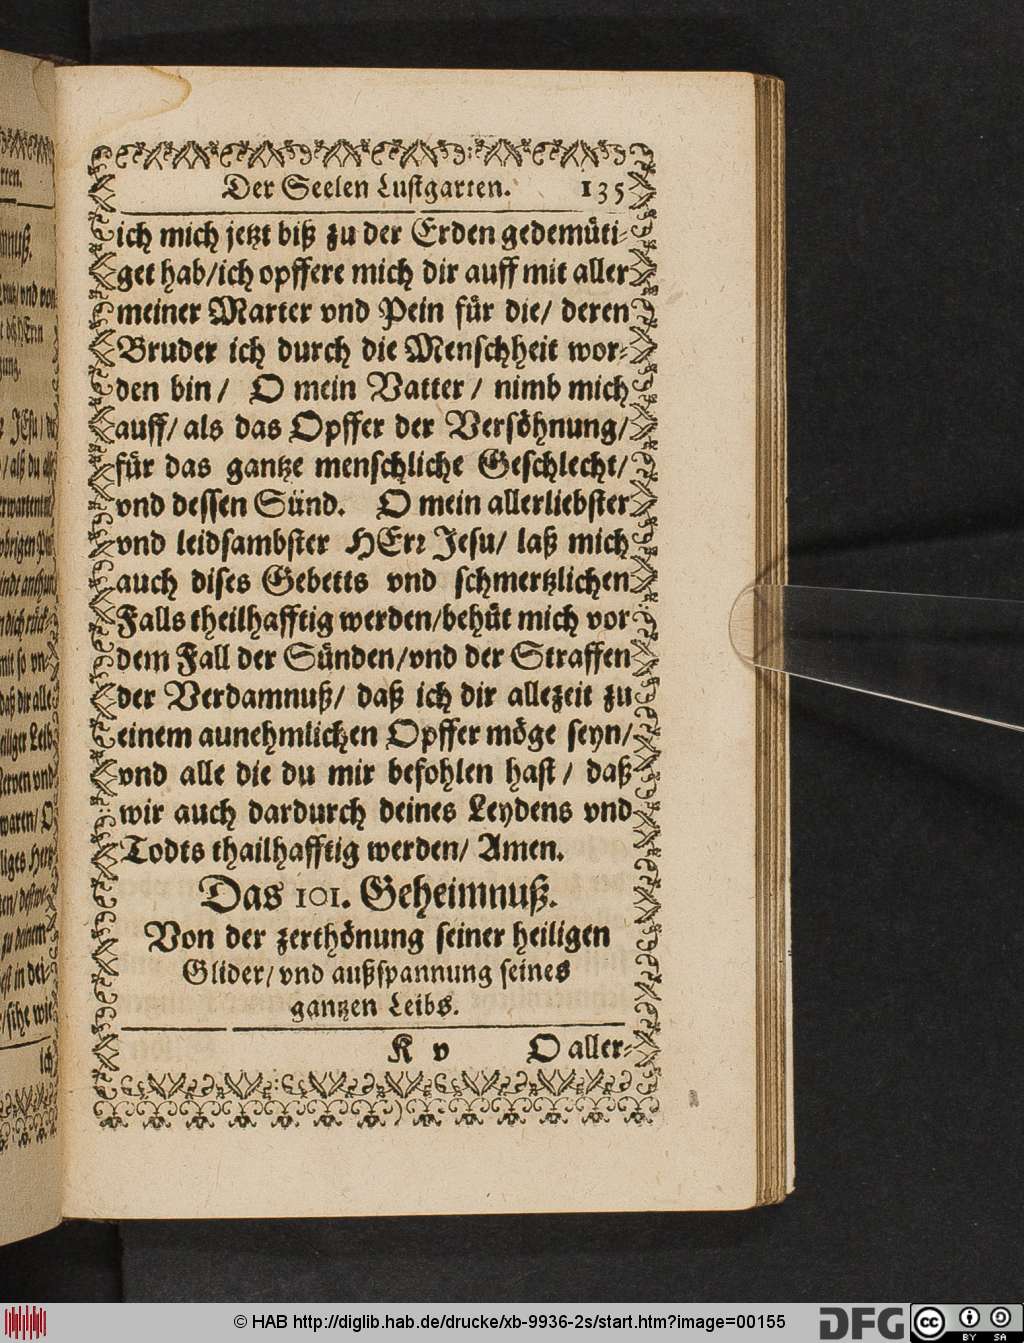 Der Seelen Lustgarten. 135
ich mich jetzt biß zu der Erden gedemüti-
get hab/ich opffere mich dir auff mit aller
meiner Marter vnd Pein für die/ deren
Bruder ich durch die Menschheit wor-
den bin/ O mein Vatter/ nimb mich
auff/ als das Opffer der Versöhnung/
für das gantze menschliche Geschlecht/
vnd dessen Sünd. O mein allerliebster
vnd leidsambster HErr Jesu/ laß mich
auch dises Gebetts vnd schmertzlichen
Falls theilhafftig werden/behüt mich vor
dem Fall der Sünden/vnd der Straffen
der Verdamnuß/ daß ich dir allezeit zu
einem aunehmlichen Opffer möge seyn/
vnd alle die du mir befohlen hast/ daß
wir auch dardurch deines Leydens vnd
Todts thailhafftig werden/ Amen.
Das 101. Geheimnuß.
Von der zerthönung seiner heiligen
Glider/ vnd außspannung seines
gantzen Leibs.
K v O aller-
© HAB http://diglib.hab.de/drucke/xb-9936-2s/start.htm?image=00155
DFG
cc BY SA